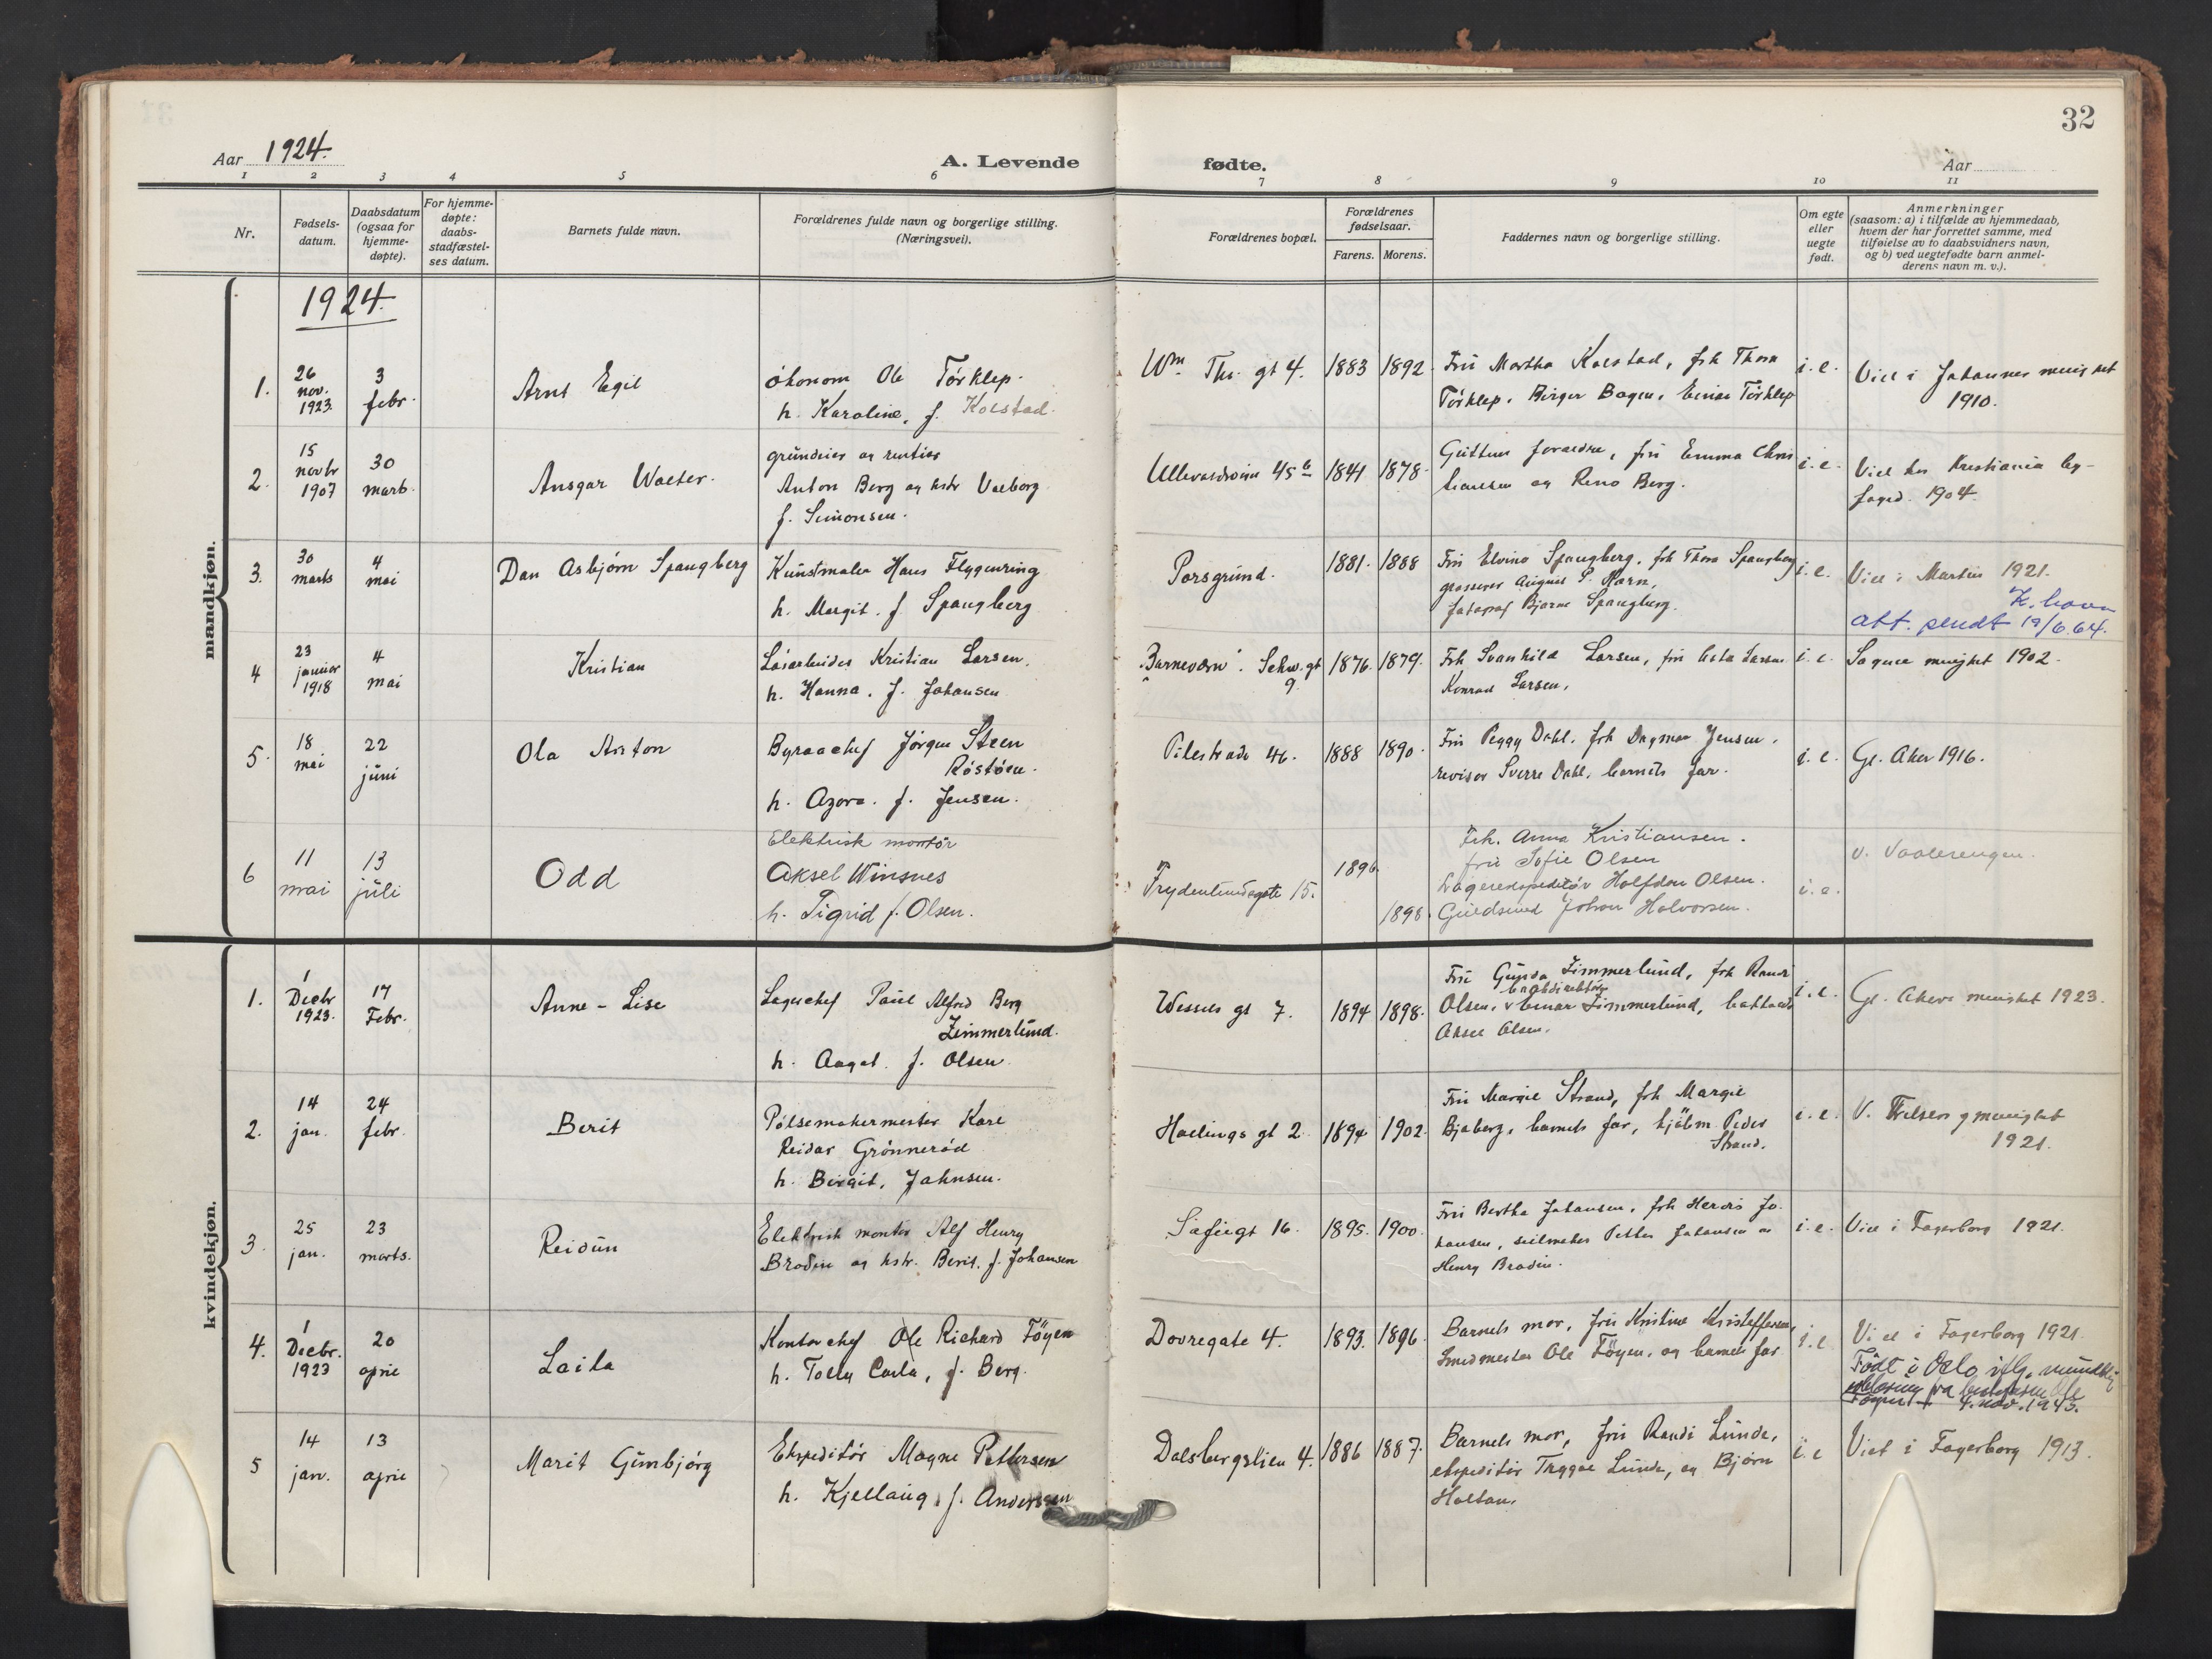 32
Aar 1924.
A. Levende fødte.
Aar
1 2 3 4 5 6 7 8 9 10 11
Nr.
Fødsels-
datum.
Daabsdatum
(ogsaa for
hjemme-
døpte).
For hjemme-
døpte:
daabs-
stadfæstel-
ses datum.
Barnets fulde navn.
Forældrenes fulde navn og borgerlige stilling.
(Næringsvei).
Forældrenes bopæl.
Forældrenes
fødselsaar.
Farens. Morens.
Faddernes navn og borgerlige stilling.
Om egte
eller
uegte
født.
Anmerkninger
(saasom: a) i tilfælde av hjemmedaab,
hvem der har forrettet samme, med
tilføielse av to daabsvidners navn,
og b) ved uegtefødte barn anmel-
derens navn m. v.).
mandkjøn.
1924.
1.
26
nov.
1923.
3
febr.
Arnt Egil
økonom Ole Tørklep.
h. Karoline, f. Kolstad.
Wm. Thr. gt 4.
1883 1892
Fru Martha Kolstad, frk Thora
Tørklep, Birger Bogen, Einar Tørklep
i. e.
Viet i Johannes menighet
1910.
2.
15
novbr
1907
30
marts
Ansgar Walter.
grundeier og rentier
Anton Berg og hstr Valborg
f. Simonsen.
Ullevoldsveien 45 b
1841 1878
Guttens forældre, fru Emma Chris
tiansen og Reno Berg.
i. e.
Viet hos Kristiania by-
foged. 1904.
3.
30
marts
4
mai
Dan Asbjørn Spangberg
Kunstmaler Hans Flygenring
h. Margit. f. Spangberg
Porsgrund.
1881. 1888
Fru Elvina Spangberg, frk Thora Spangberg
grosserer August P.
fotograf Bjarne Spangberg.
i. e.
Viet i Martin 1921.
K.havn
att. sendt 19/6.64.
4
23
januar
1918
4
mai
Kristian
Løsarbeider Kristian Larsen.
h. Hanna. f. Johansen
"Barnevern". Schw. gt
9.
1876. 1879.
Frk Svanhild Larsen, fru Asta Larsen
Konrad Larsen.
i. e.
Sagene menighet 1902.
5.
18
mai
22
juni
Ola Anton
Byraachef Jørgen Steen
Røstøen.
h. Azora. f. Jensen.
Pilestrede 46.
1888 1890
Fru Peggy Dahl. frk Dagmar Jensen.
revisor Sverre Dahl. barnets far.
i. e.
Gl. Aker 1916.
6
11
mai
13
juli
Odd
Elektrisk montør
Aksel Winsnes
h. Sigrid f. Olsen.
Frydenlundsgate 15.
1896.
1898.
Frk. Anna Kristiansen.
fru Sofie Olsen
Lagerekspeditør Halfdan Olsen.
Guldsmed Johan Halvorsen.
i. e.
v. Vaalerengen.
kvindekjøn.
1.
1
Decbr
1923.
17
Febr.
Anne-Lise
Lagerchef Paul Alfred Berg
Zimmerlund.
h. Aagot. f. Olsen
Wessels gt 7.
1894 1898.
Fru Gunda Zimmerlund, frk Randi
Olsen, Einar Zimmerlund,
Aksel Olsen.
i. e.
Gl. Akers menighet 1923.
2.
14
jan.
24
febr.
Berit
Pølsemakermester Karl
Reidar Grønnerød
h. Birgit, Johnsen.
Hallings gt 2.
1894 1902.
Fru Margit Strand, frk Margit
Bjaberg, barnets far, kjøbm. Peder
Strand.
i. e.
V. menighet
1921.
3.
25
jan.
23
marts.
Reidun
Elektrisk montør Alf Henry
Brodin og hstr. Berit. f. Johansen
Sofiegt 16.
1895. 1900
Fru Bertha Johansen, frk Herdis Jo-
hansen, seilmaker Petter Johansen og
Henry Brodin.
i. e.
Viet i Fagerborg 1921.
4.
1
Decbr.
1923
20
april
Laila
Kontorchef Ole Richard Föyen
h. Carla, f. Berg.
Dovregate 4.
1893. 1896.
Barnets mor, fru Kristine Kristoffersen,
Smedmester Ole Föyen, og barnets far
i. e.
Viet i Fagerborg 1921.
Født i Oslo, iflg. mundtlig
fra Ole
4. nov. 1943.
5
14
jan.
13
april
Marit Gunbjørg
Ekspeditør Magne Pettersen
h. Kjellaug, f. Anderssen
Dalsbergstien 4.
1886 1887.
Barnets mor, fru Randi Lunde,
ekspeditør Trygve Lunde, og Bjørn
Holtan.
i. e
Viet i Fagerborg 1913.